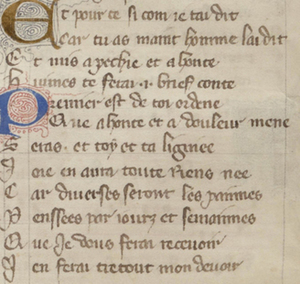 Et pour ce si com ie tai dit
Car tu as maint homme laidit
Et mis a pechie et a honte
Humes te ferai .i. brief conte
Premier est de toi ordene
Que a honte et a douleur mene
Seras et toy et ta ligniee
Joie en aura toute riens nee
Car diverses seront les painnes
Pensees par iours et semainnes
Que Je vous ferai recevoir
J en ferai tretout mon devoir